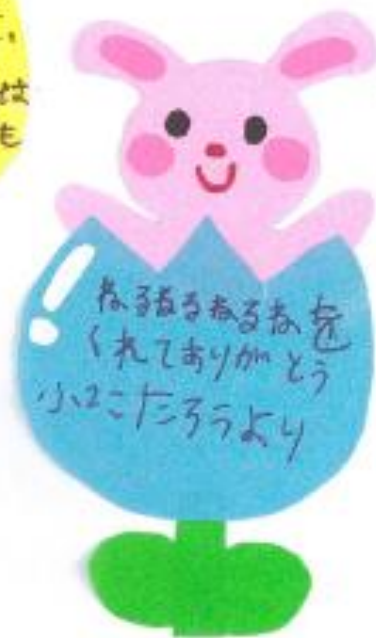 ねるねるねるねを
くれてありがとう
小2こたろうより